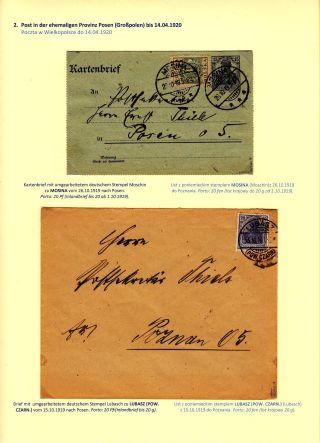 2. Post in der ehemaligen Provinz Posen (Großpolen) bis 14.04.1920
Poczta w Wielkopolsce do 14.04.1920
Kartenbrief
An
Herrn Ernst Thiele
Posen O 5.
Kartenbrief mit umgearbeitetem deutschem Stempel Moschin
zu MOSINA vom 26.10.1919 nach Posen.
Porto: 10 Pf (Inlandbrief bis 20 ab 1.10 1919).
List z poniemieckim stemplem MOSINA (Moschin); 26.10.1919
do Poznania. Porto: 10 fen (list krajowy do 20 g od 1.10.1919).
Herrn
Postsekretär Thiele
in Poznan O5.
Brief mit umgearbeitetem deutschem Stempel Lubasch zu LUBASZ (POW.
CZARN.) vom 15.10.1919 nach Posen. Porto: 20 Pf (Inlandbrief bis 20 g).
List z poniemieckim stemplem LUBASZ (POW. CZARN.) (Lubasch)
z 15.10.1919 do Poznania. Porto: 20 fen (list krajowy do 20 g).